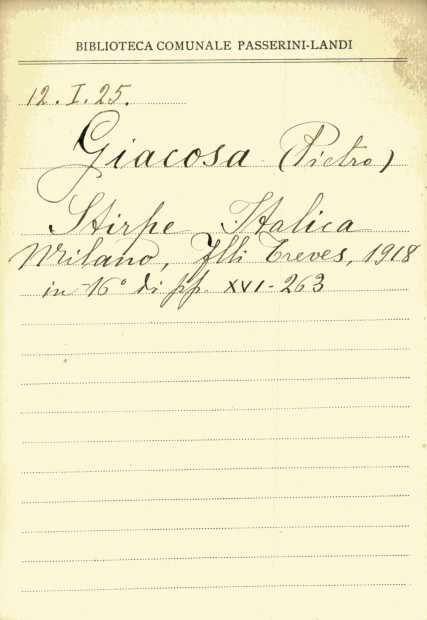 BIBLIOTECA COMUNALE PASSERINI-LANDI
12.I.25.
Giacosa (Pietro)
Stirpe Italica
Milano, Flli Treves, 1918
in 16° di pp. XVI-263